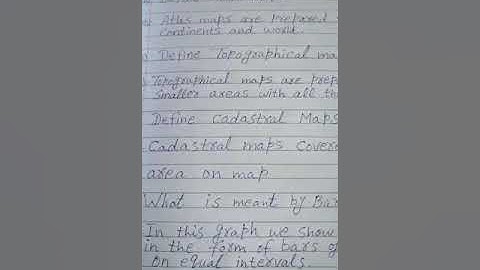 Atlas maps are Prepared
continents and world.
Define Topographical
Topographical maps are
smaller areas with all
Define Cadastral Maps
Cadastral maps
area on map
What is meant by
In this graph we show
in the form of bars
on equal intervals.